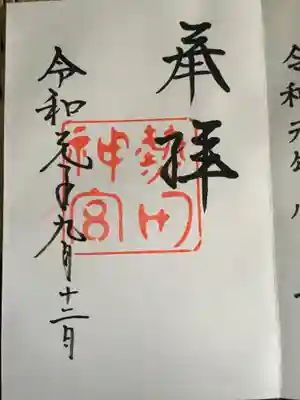 奉拝
熱田神宮
令和元年九月十二日
令和元年八